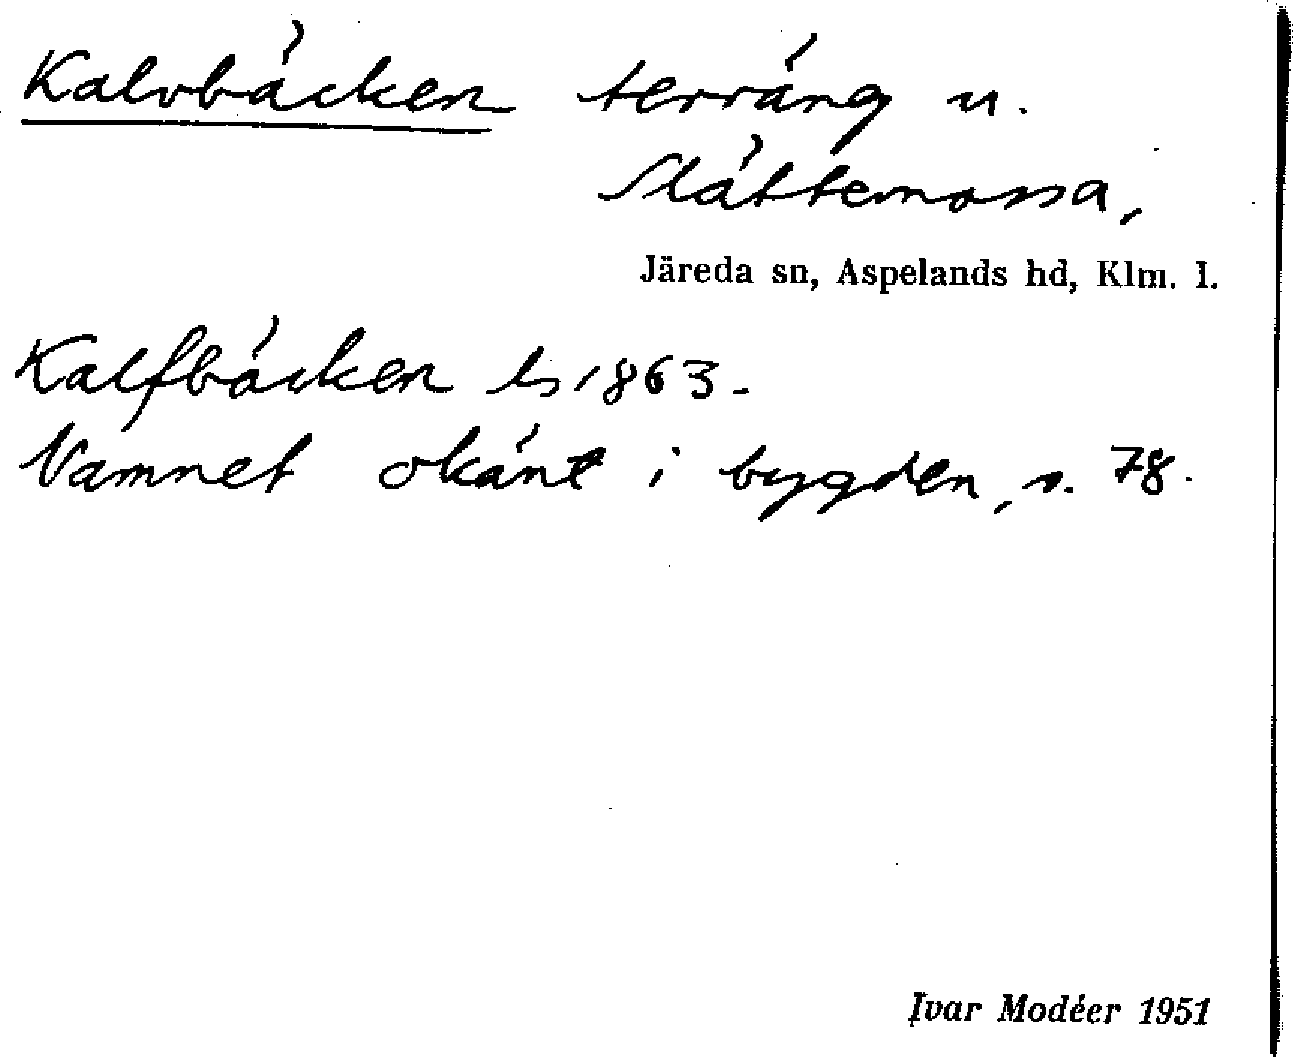 Kalvbäcken terräng u.
Slåttemossa,
Järeda sn, Aspelands hd, Klm. l.
Kalfbäcken ls 1863.
Namnet okänt i bygden, s. 78.
Ivar Modéer 1951